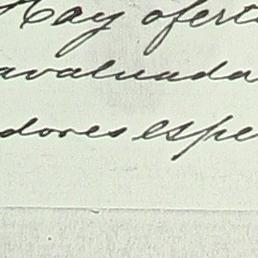 Hay oferta
avaluada
dores espe